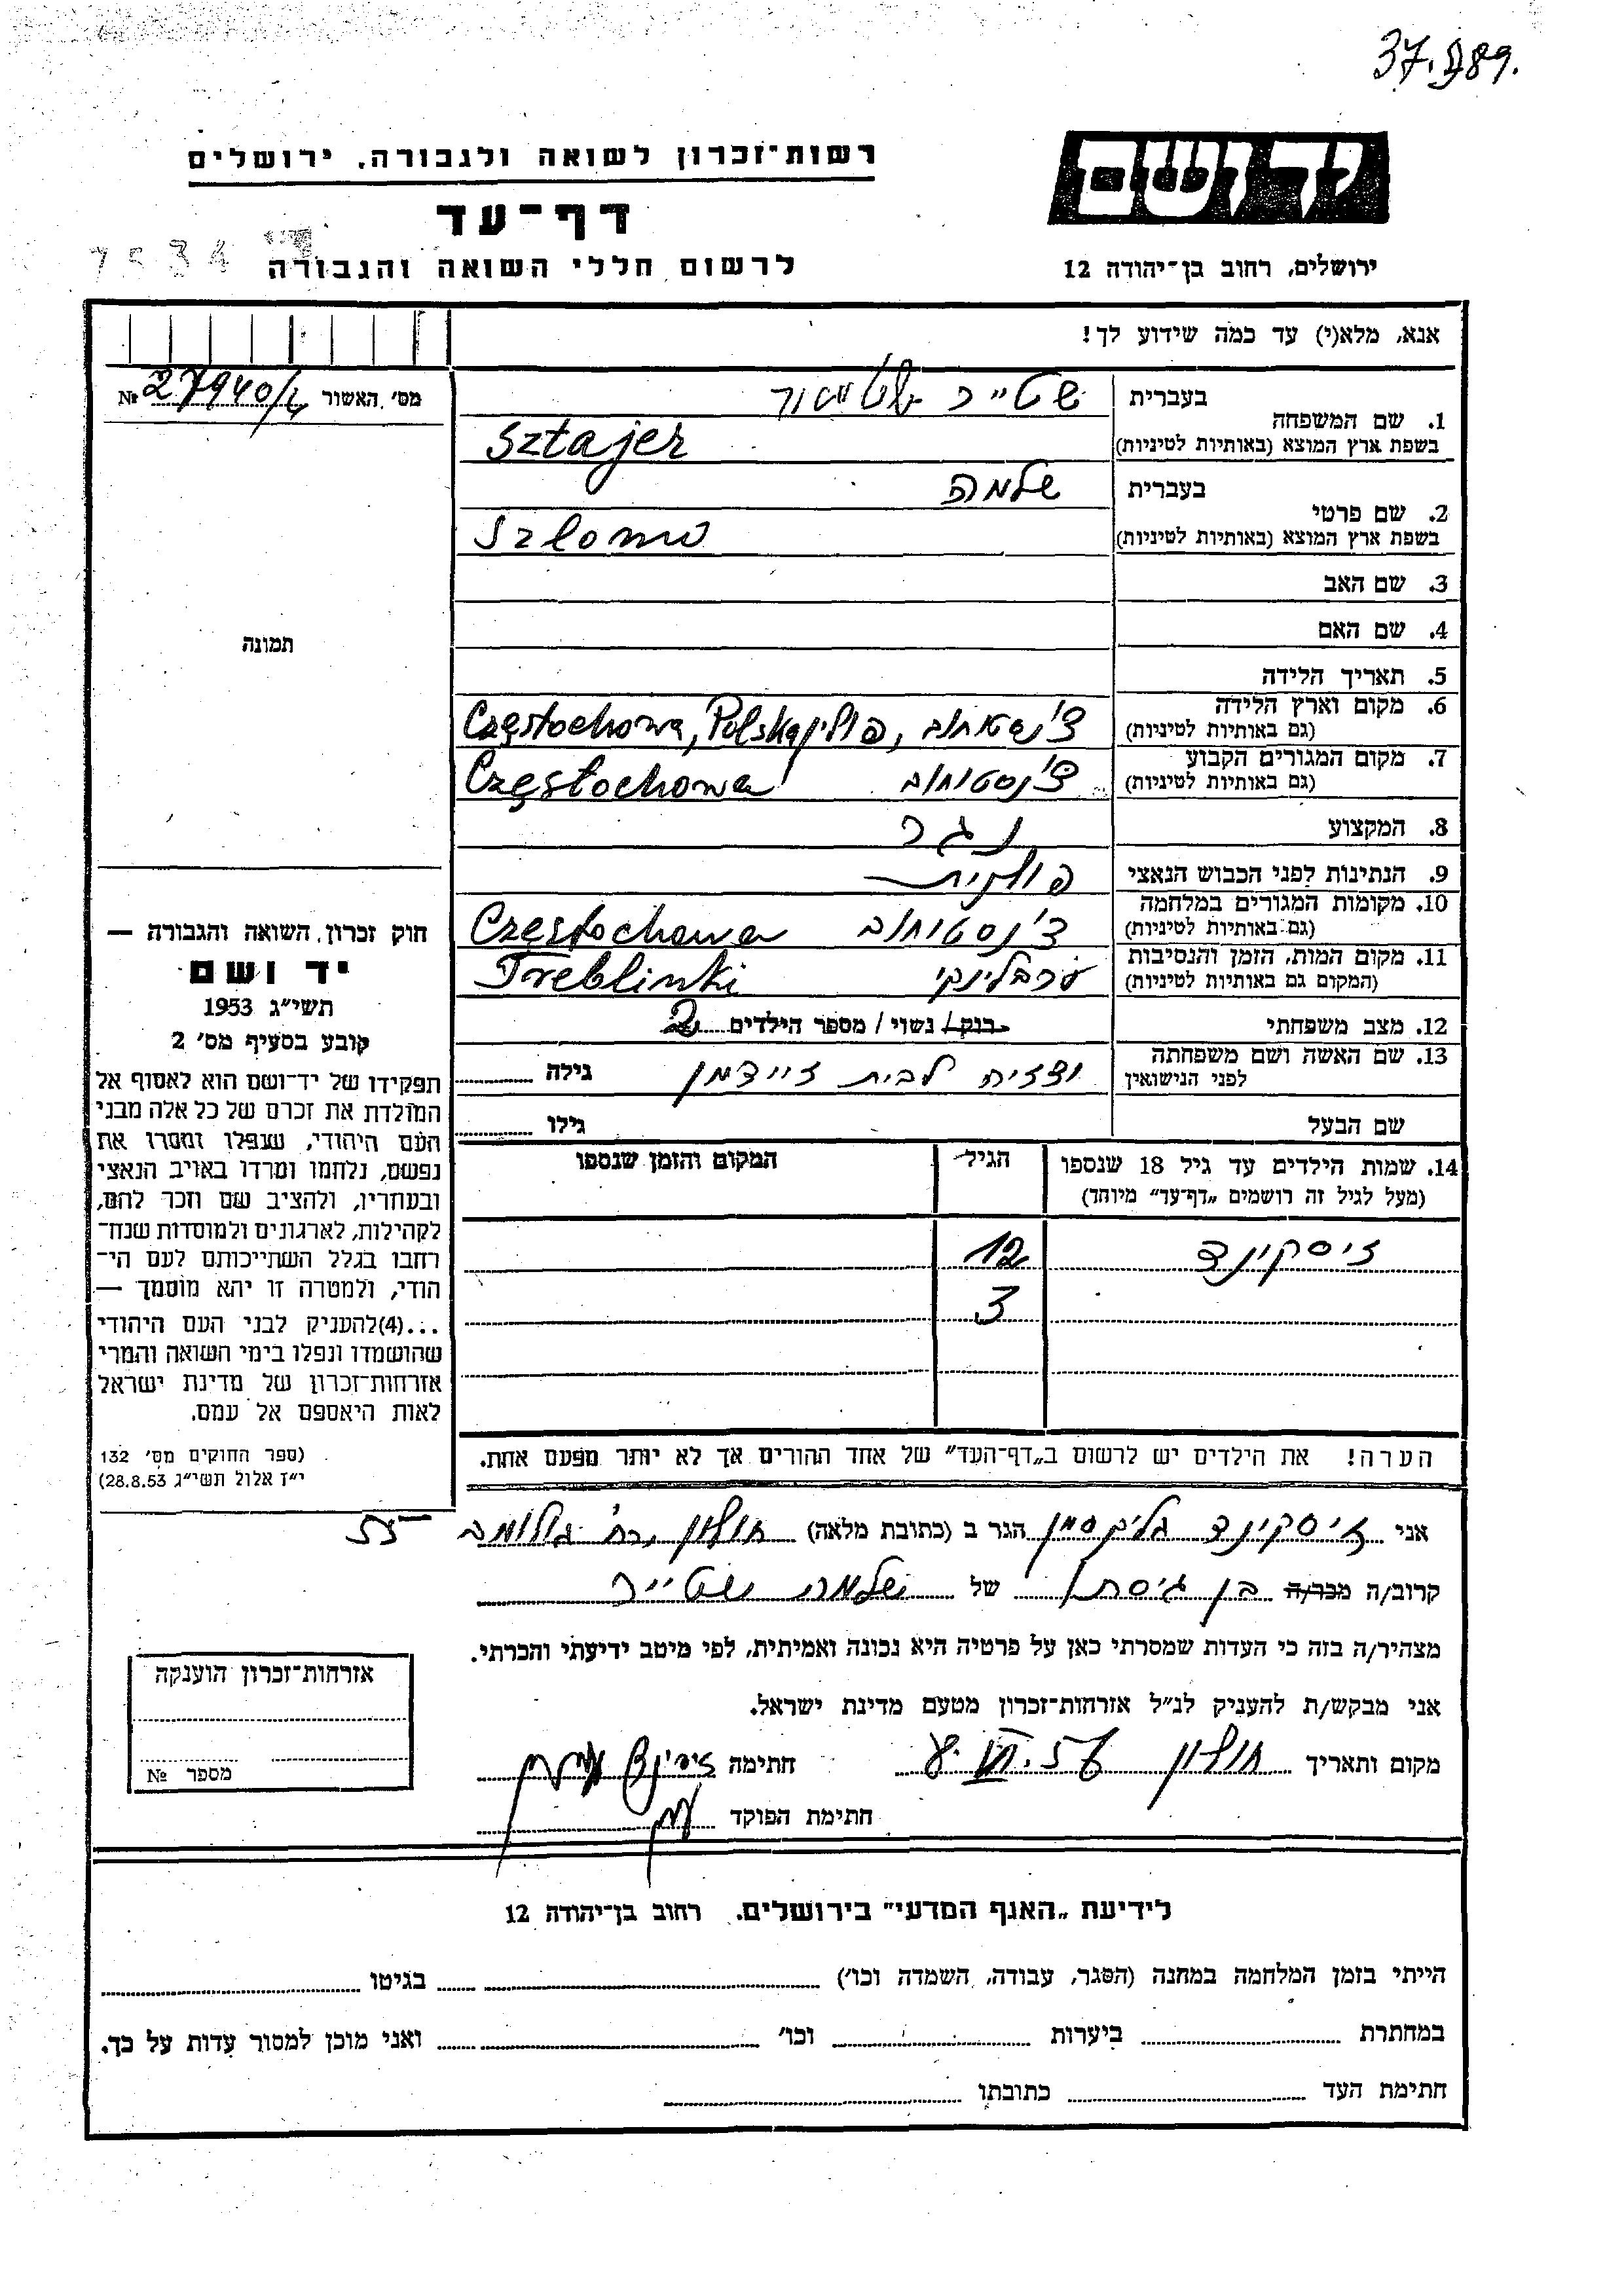 37.789.
יד ושם
רשות־זכרון לשואה ולגבורה, ירושלים
דף־עד
7534
לרשום חללי השואה והגבורה
ירושלים, רחוב בן־יהודה 12
אנא, מלא(י) עד כמה שידוע לך!
מס׳ האשור 27940/4 №
1. שם המשפחה
בעברית שטייר
בשפת ארץ המוצא (באותיות לטיניות) Sztajer
2. שם פרטי
בעברית שלמה
בשפת ארץ המוצא (באותיות לטיניות) Szlomo
3. שם האב
4. שם האם
5. תאריך הלידה
6. מקום וארץ הלידה
(גם באותיות לטיניות) צ'נסטוחוב, פולין Częstochowa, Polska
7. מקום המגורים הקבוע
(גם באותיות לטיניות) צ'נסטוחוב Częstochowa
8. המקצוע נגר
9. הנתינות לפני הכבוש הנאצי פולנית
10. מקומות המגורים במלחמה
(גם באותיות לטיניות) צ'נסטוחוב Częstochowa
11. מקום המות, הזמן והנסיבות
(המקום גם באותיות לטיניות) טרבלינקי Treblinki
12. מצב משפחתי רווק / נשוי / מספר הילדים 2
13. שם האשה ושם משפחתה
לפני הנישואין לבית זיידמן גילה
שם הבעל גילו
14. שמות הילדים עד גיל 18 שנספו
(מעל לגיל זה רושמים „דף־עד״ מיוחד)
הגיל
המקום והזמן שנספו
זיסקינד 12
3
הערה! את הילדים יש לרשום ב„דף־העד״ של אחד ההורים אך לא יותר מפעם אחת.
תמונה
חוק זכרון השואה והגבורה —
יד ושם
תשי״ג 1953
קובע בסעיף מס׳ 2
תפקידו של יד־ושם הוא לאסוף אל
המולדת את זכרם של כל אלה מבני
העם היהודי, שנפלו ומסרו את
נפשם, נלחמו ומרדו באויב הנאצי
ובעוזריו, ולהציב שם וזכר להם,
לקהילות, לארגונים ולמוסדות שנח־
רבו בגלל השתייכותם לעם הי־
הודי, ולמטרה זו יהא מוסמך —
...(4)להעניק לבני העם היהודי
שהושמדו ונפלו בימי השואה והמרי
אזרחות־זכרון של מדינת ישראל
לאות היאספם אל עמם.
(ספר החוקים מס׳ 132
י״ז אלול תשי״ג 28.8.53)
אני זיסקינד גליקסמן הגר ב (כתובת מלאה) חולון, רח' גולומב 55
קרוב/ה מכר/ה בן גיסתו של שלמה שטייר
מצהיר/ה בזה כי העדות שמסרתי כאן על פרטיה היא נכונה ואמיתית, לפי מיטב ידיעתי והכרתי.
אני מבקש/ת להעניק לנ״ל אזרחות־זכרון מטעם מדינת ישראל.
מקום ותאריך חולון חתימה
חתימת הפוקד
אזרחות־זכרון הוענקה
מספר №
לידיעת „האגף המדעי״ בירושלים, רחוב בן־יהודה 12
הייתי בזמן המלחמה במחנה (הסגר, עבודה, השמדה וכו׳) בגיטו
במחתרת ביערות וכו׳ ואני מוכן למסור עדות על כך.
חתימת העד כתובתו